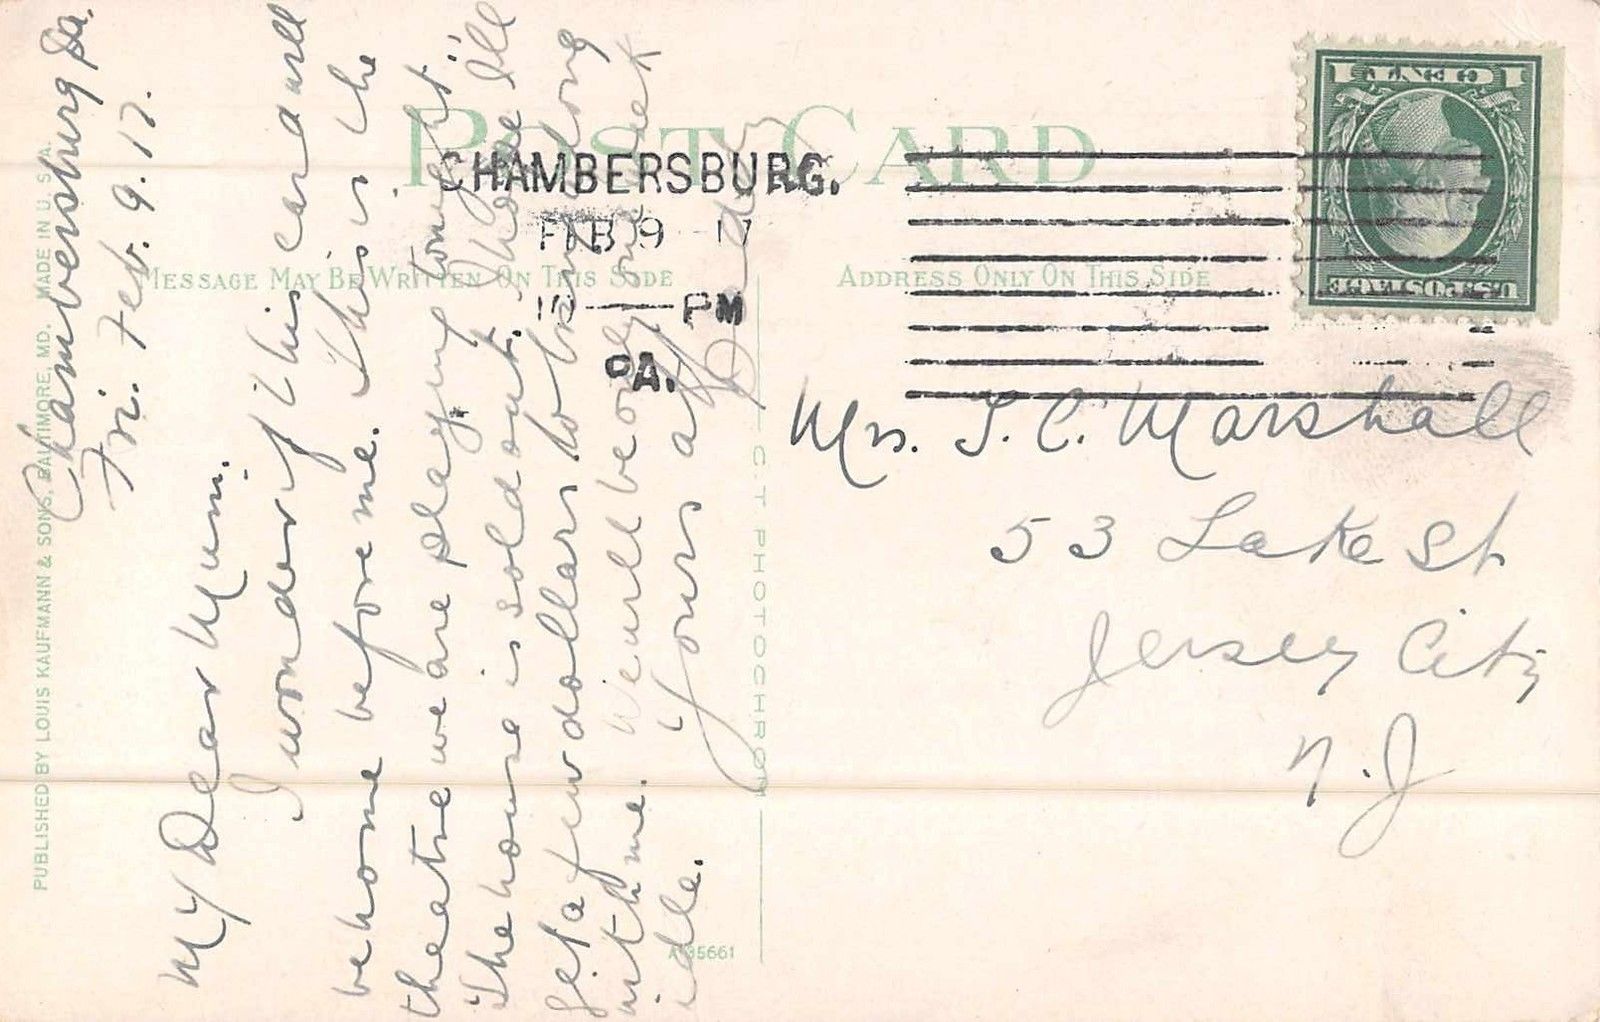 POST CARD
CHAMBERSBURG.
FEB 9 17
10 PM
PA.
MESSAGE MAY BE WRITTEN ON THIS SIDE
ADDRESS ONLY ON THIS SIDE
1 CENT 1
U.S. POSTAGE
PUBLISHED BY LOUIS KAUFMANN & SONS, BALTIMORE, MD. MADE IN U.S.A.
Chambersburg Pa.
Fri. Feb. 9. 17.
My Dear Mum.
I wonder if this card will
be home before me. This is the
theatre we are playing tonight.
The house is sold out. I hope I'll
get a few dollars to bring along
with me. We will be only one week
idle.
Yours aff
C.T. PHOTOCHROM
A-35661
Mrs. J. C. Marshall
53 Lake St
Jersey City
N.J